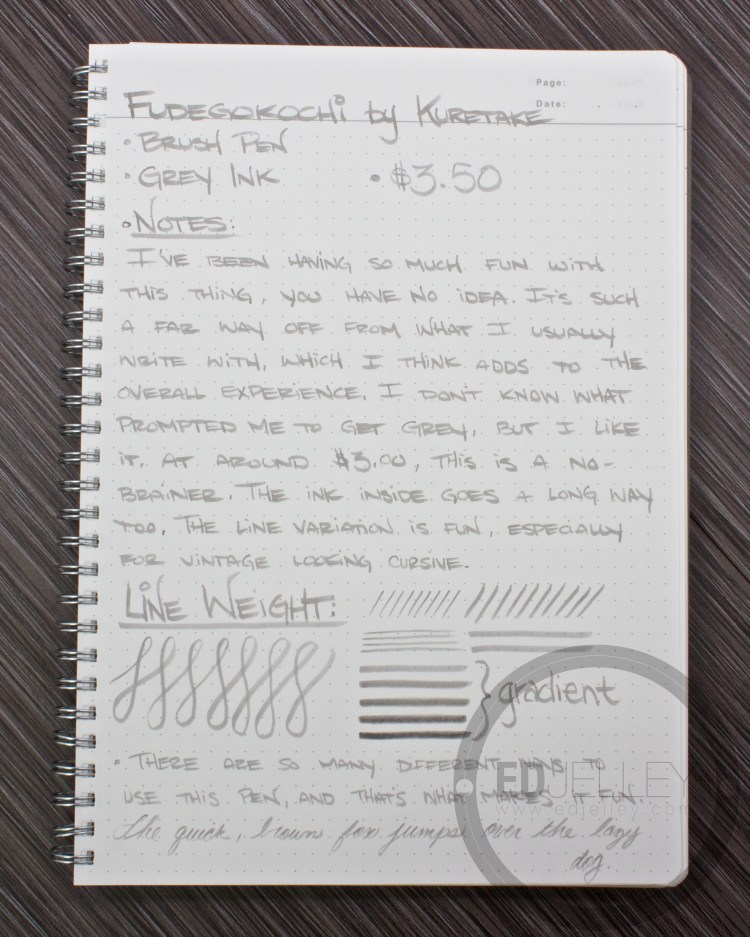 Page:
Date:
FUDEGOKOCHI by KURETAKE
• BRUSH PEN
• GREY INK • $3.50
• NOTES:
I'VE BEEN HAVING SO MUCH FUN WITH
THIS THING, YOU HAVE NO IDEA. IT'S SUCH
A FAR WAY OFF FROM WHAT I USUALLY
WRITE WITH, WHICH I THINK ADDS TO THE
OVERALL EXPERIENCE. I DON'T KNOW WHAT
PROMPTED ME TO GET GREY, BUT I LIKE
IT. AT AROUND $3.00, THIS IS A NO-
BRAINER. THE INK INSIDE GOES A LONG WAY
TOO. THE LINE VARIATION IS FUN, ESPECIALLY
FOR VINTAGE LOOKING CURSIVE.
LINE WEIGHT:
gradient
• THERE ARE SO MANY DIFFERENT WAYS TO
USE THIS PEN, AND THAT'S WHAT MAKES IT FUN.
The quick, brown fox jumps over the lazy
dog.
EDJELLEY
www.edjelley.com